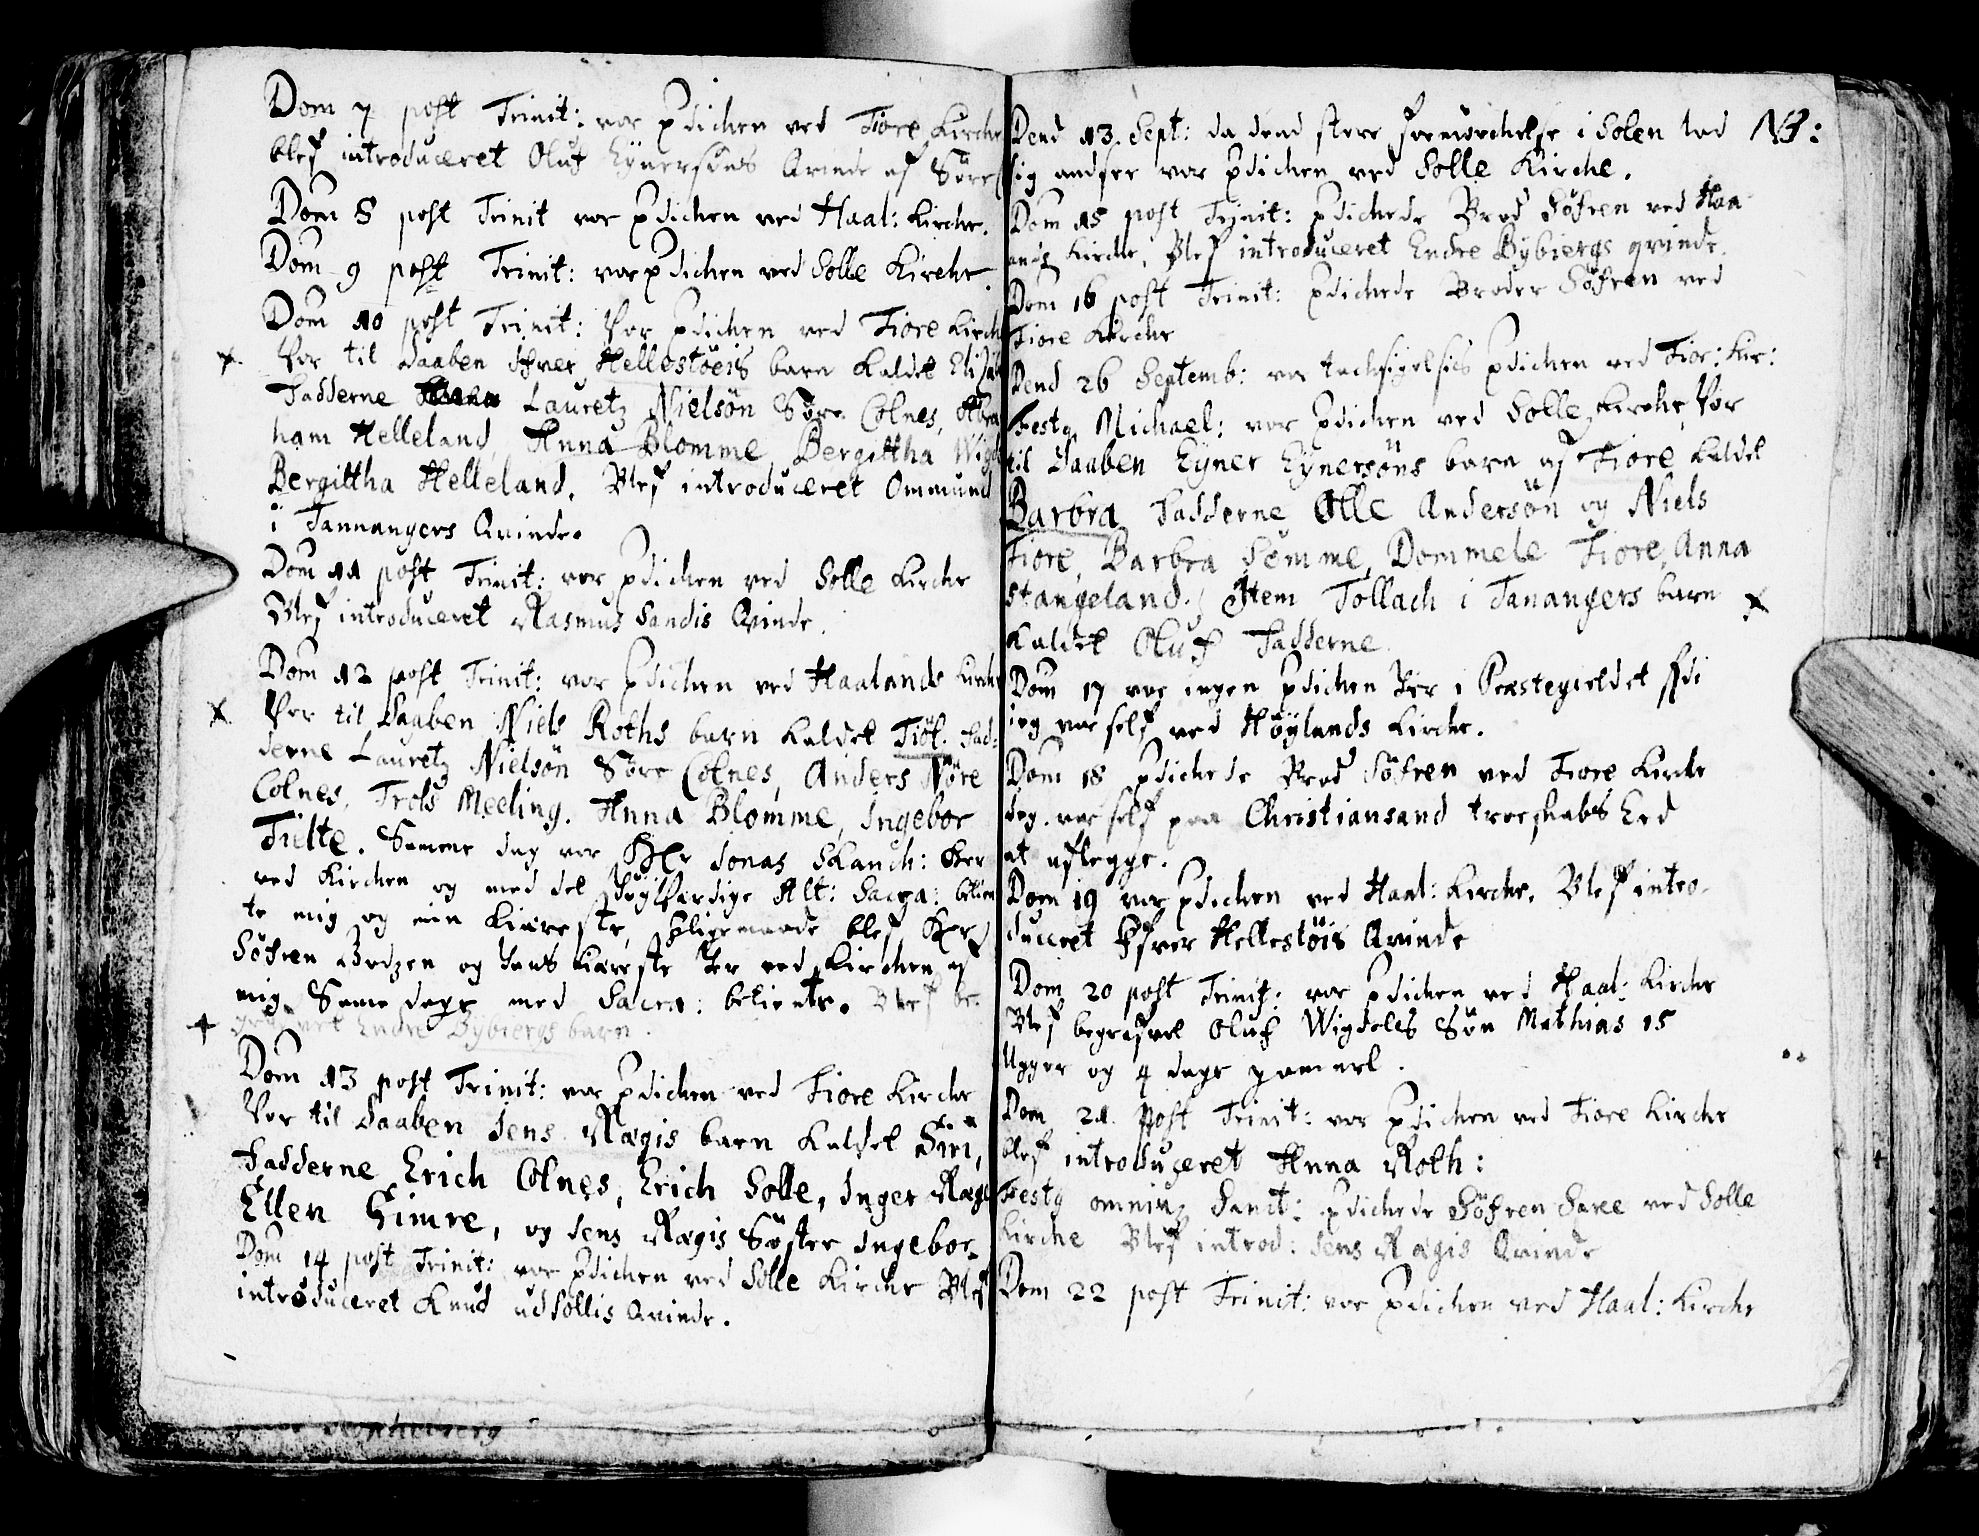 Dom 7 post Trinit: var Prdichen ved Tiore Kirche
blef introduceret Oluf Eynersøns Qvinde af Søre
Dom 8 post Trinit var Prdichen ved Haal: Kirche.
Dom 9 post Trinit: var Prdichen ved Solle Kirche
Dom 10 post Trinit: Var Prdichen ved Tiore Kirch
Var til Daaben Ifver Hellestöeis barn kaldet
Fadderne Lauretz Nielsön Söre Colnes, Abra
ham Helleland, Anna Blomme, Bergittha
Bergittha Helleland. Blef introduceret Ommund
i Tannangers Qvinde.
Dom 11 post Trinit: var Prdichen ved Solle Kirche
Blef introduceret Rasmus Sandis Qvinde.
Dom 12 post Trinit: var Prdichen ved Haalands Kirche
Var til Daaben Niels Roths barn kaldet Tiöl. Fad:
derne Lauretz Nielsön Söre Colnes, Anders Nöre
Colnes, Trols Meeling. Anna Blomme, Ingebor
Tielte. Samme dag var Her Jonas Schanch: her
ved Kirchen og med det Høyværdige Alt: Sacra: betien
te mig og min Kiæreste, Ligemaade blef Her
Söfren og hans Kiæreste her ved Kirchen af
mig Samme dage med Sacra: betiente. Blef be-
grafvet Endre Bybiergs barn.
Dom 13 post Trinit: var Prdichen ved Tiore Kirche
Var til Daaben Jens Rægis barn kaldet Siri,
Fadderne Erich Colnes, Erich Solle, Inger Rægi
Ellen Gimre, og Jens Rægis Søster Ingebor.
Dom 14 post Trinit: var Prdichen ved Solle Kirche Blef
introduceret Knud udsollis Qvinde.
Dend 13. Sept: da dend store formørchelse i Solen lod NB:
sig andsee var Prdichen ved Solle Kirche.
Dom 15 post Trinit: Prdichede Brod Söfren ved Haa
ands Kirche, Blef introduceret Endre Bybiergs qvinde.
Dom 16 post Trinit: Prdichede Broder Söfren ved
Tiore Kirche
Dend 26 Septemb: var tachsigelsis Prdichen ved Tior: Kir:
Festo Michael: var Prdichen ved Solle Kirche, Var
til Daaben Eyner Eynersöns barn af Tiore kaldet
Barbra Fadderne Olle Andersön og Niels
Tiore, Barbra Sömme, Dommele Tiore, Anna
Stangeland. Item Tollach i Tanangers barn
kaldet Oluf Fadderne
Dom 17 var ingen Prdichen her i Præstegieldet thi
ieg var self ved Höylands Kirche.
Dom 18 Prdichede Brod Söfren ved Tiore Kirche
Jeg var self paa Christiansand troeskabs Eed
at aflegge.
Dom 19 var Prdichen ved Haal: Kirche. Blef intro-
duceret Ifver Hellestöis Qvinde
Dom 20 post Trinit: var Prdichen ved Haal: Kirche
Blef begrafvet Oluf Wigdels Søn Mathias 15
Ugger og 4 dage gammel.
Dom 21. post Trinit: var Prdichen ved Tiore Kirche
blef introduceret Anna Roth:
Festo omniu Sanct: Prdichede Söfren ved Solle
Kirche Blef introd: Jens Rægis Qvinde
Dom 22 post Trinit: var Prdichen ved Haal: Kirche